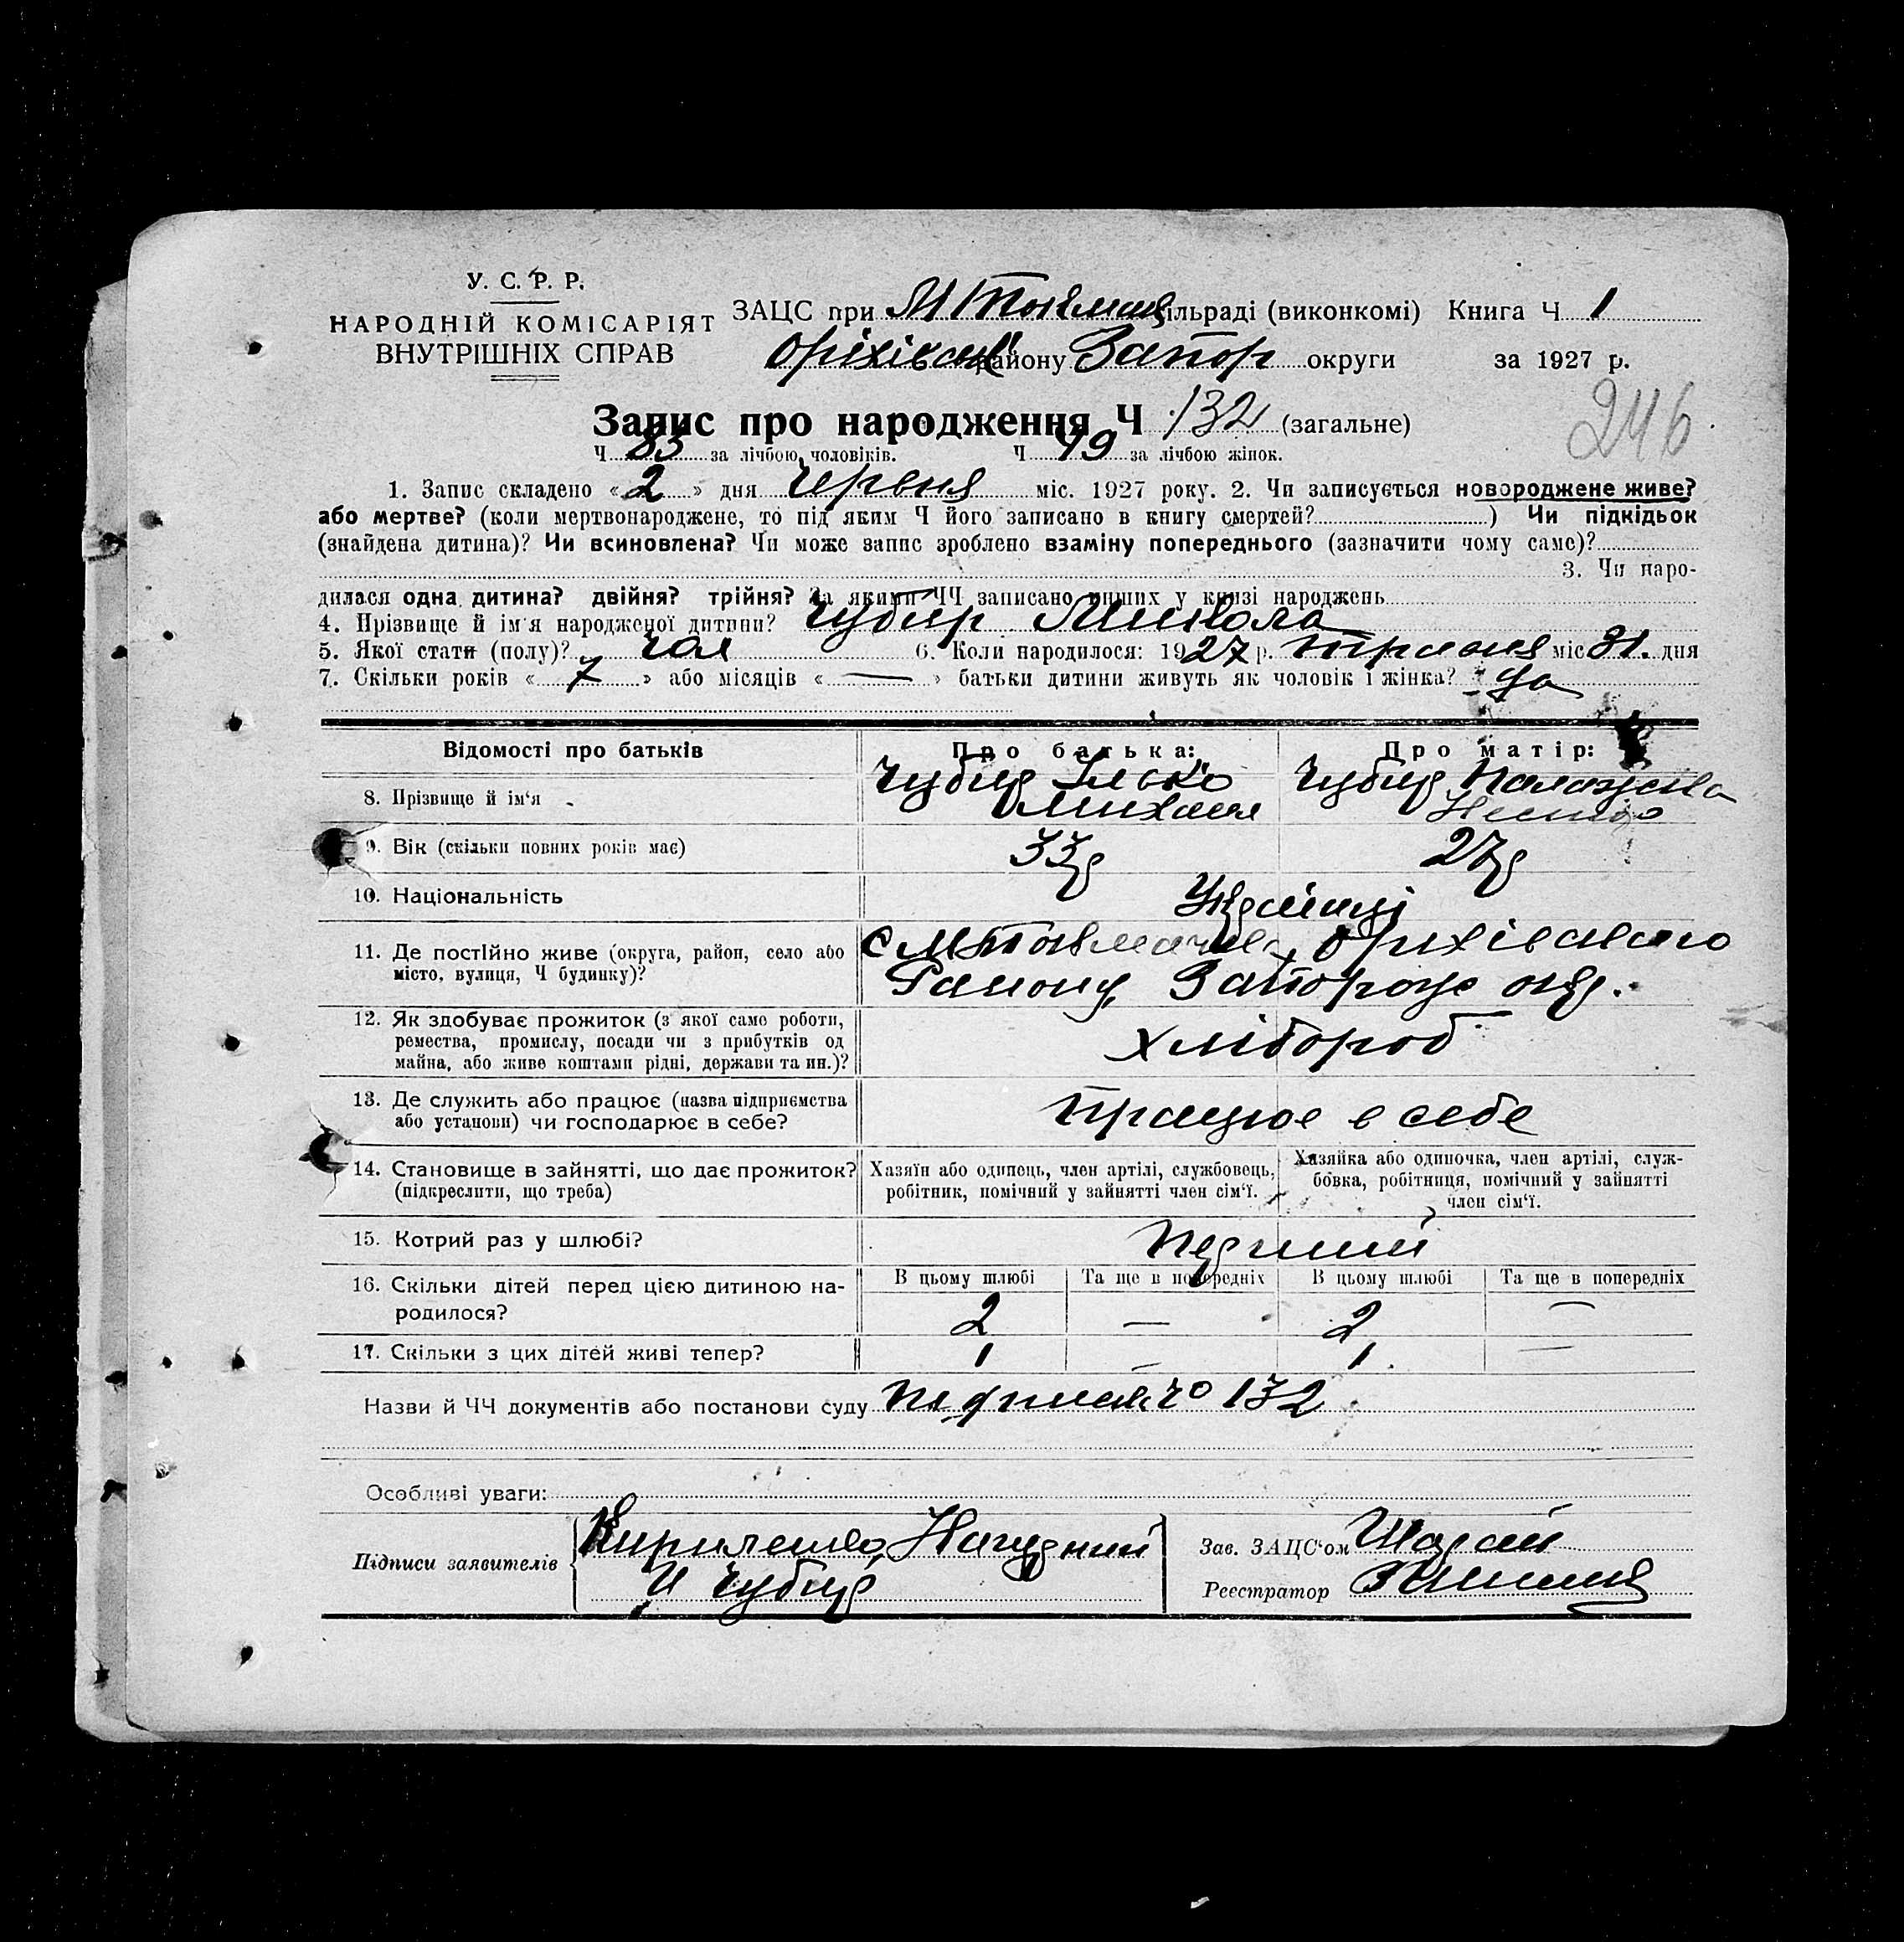 У. С. Р. Р.
НАРОДНІЙ КОМІСАРІЯТ
ВНУТРІШНІХ СПРАВ
ЗАЦС при М Токмац сільраді (виконкомі) Книга Ч 1
Оріхівськ району Запор округи за 1927 р.
246
Запис про народження Ч 132 (загальне)
Ч 83 за лічбою чоловіків. Ч 49 за лічбою жінок.
1. Запис складено «2» дня червня міс. 1927 року. 2. Чи записується новороджене живе?
або мертве? (коли мертвонароджене, то під яким Ч його записано в книгу смертей? ) Чи підкідьок
(знайдена дитина)? Чи всиновлена? Чи може запис зроблено взаміну попереднього (зазначити чому саме)?
3. Чи наро-
дилася одна дитина? двійня? трійня? За якими ЧЧ записано инших у книзі народжень
4. Прізвище й ім'я народженої дитини? Чубир Микола
5. Якої статі (полу)? чол 6. Коли народилося: 1927 р. травня міс 31. дня
7. Скільки років «7» або місяців «—» батьки дитини живуть як чоловік і жінка? да
Відомості про батьків Про батька: Про матір:
8. Прізвище й ім'я Чубир Ілько Чубир Палажка
Михайл
9. Вік (скільки повних років має) 33р 27р
10. Національність Українці
11. Де постійно живе (округа, район, село або
місто, вулиця, Ч будинку)?
с М Токмачка, Оріхівського
Району, Запорож окр.
12. Як здобуває прожиток (з якої само роботи,
ремества, промислу, посади чи з прибутків од
майна, або живе коштами рідні, держави та ин.)?
хлібороб
13. Де служить або працює (назва підприємства
або установи) чи господарює в себе?
працює в себе
14. Становище в зайнятті, що дає прожиток?
(підкреслити, що треба)
Хазяїн або одинець, член артілі, службовець,
робітник, помічний у зайнятті член сім'ї.
Хазяйка або одиночка, член артілі, служ-
бовка, робітниця, помічний у зайнятті
член сім'ї.
15. Котрий раз у шлюбі? Перший
16. Скільки дітей перед цією дитиною на-
родилося?
В цьому шлюбі Та ще в попередніх В цьому шлюбі Та ще в попередніх
2 — 2 —
17. Скільки з цих дітей живі тепер? 1 — 1 —
Назви й ЧЧ документів або постанови суду 132
Особливі уваги:
Підписи заявителів Кириленко, Нагурний
И Чубир
Зав. ЗАЦС'ом
Реєстратор